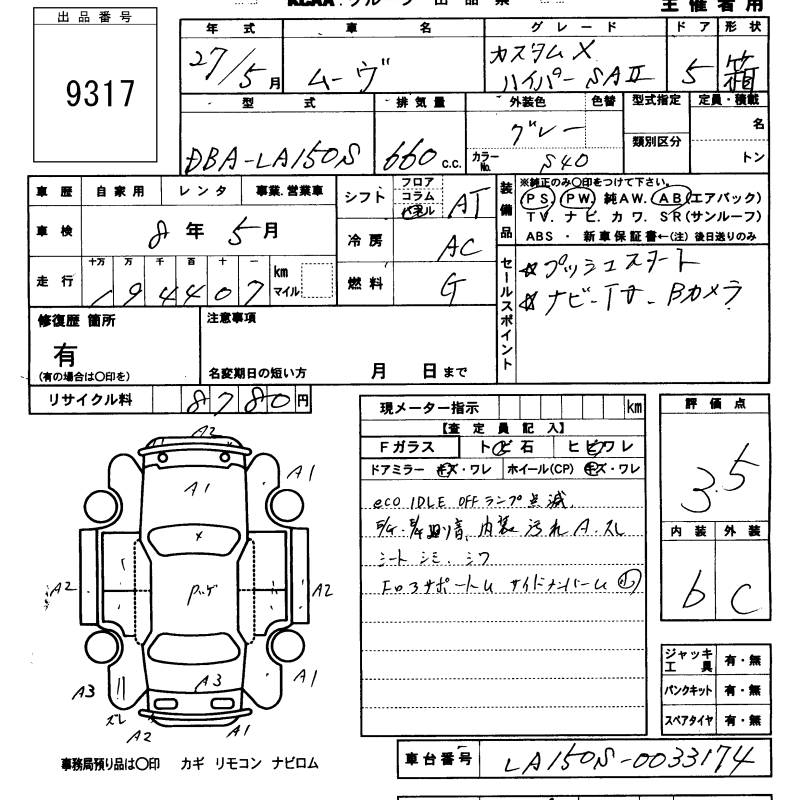 主催者用
出品番号
9317
年式 車名 グレード ドア 形状
27/5月 ムーヴ カスタムX ハイパーSAⅡ 5 箱
型式 排気量 外装色 色替 型式指定 定員・積載
DBA-LA150S 660 c.c. グレー 類別区分 名
カラーNo. S40 トン
車歴 自家用 レンタ 事業.営業車
車検 8年 5月
走行 十万 万 千 百 十 一 km マイル
194407
シフト フロア コラム パネル AT
冷房 AC
燃料 G
装備品
※純正のみ〇印をつけて下さい。
PS PW 純AW. AB(エアバック)
TV. ナビ. カワ. SR(サンルーフ)
ABS ・ 新車保証書←(注) 後日送りのみ
セールスポイント
☆プッシュスタート
☆ナビ-TV. Bカメラ
修復歴 箇所
有
(有の場合は〇印を)
注意事項
名変期日の短い方 月 日まで
リサイクル料 8780円
現メーター指示 km
【査定員記入】
Fガラス トビ石 ヒビワレ
ドアミラー キズ・ワレ ホイール(CP) キズ・ワレ
eco IDLE OFFランプ点滅
内装汚れA.スレ
シートシミ.シワ
サイドメンバー
評価点
3.5
内装 外装
b C
ジャッキ工具 有・無
パンクキット 有・無
スペアタイヤ 有・無
A2
A1
A1
A2
A2
A3
A3
A1
ズレ
A2
A1
事務局預り品は〇印 カギ リモコン ナビロム
車台番号 LA150S-0033174